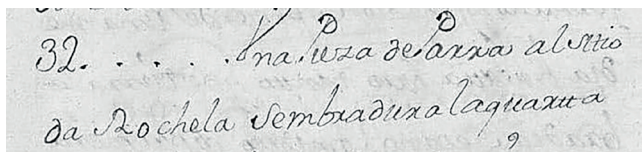 32. . . . . Vna Pieza de Parra al sitio
da Rochela Sembradura laquarta